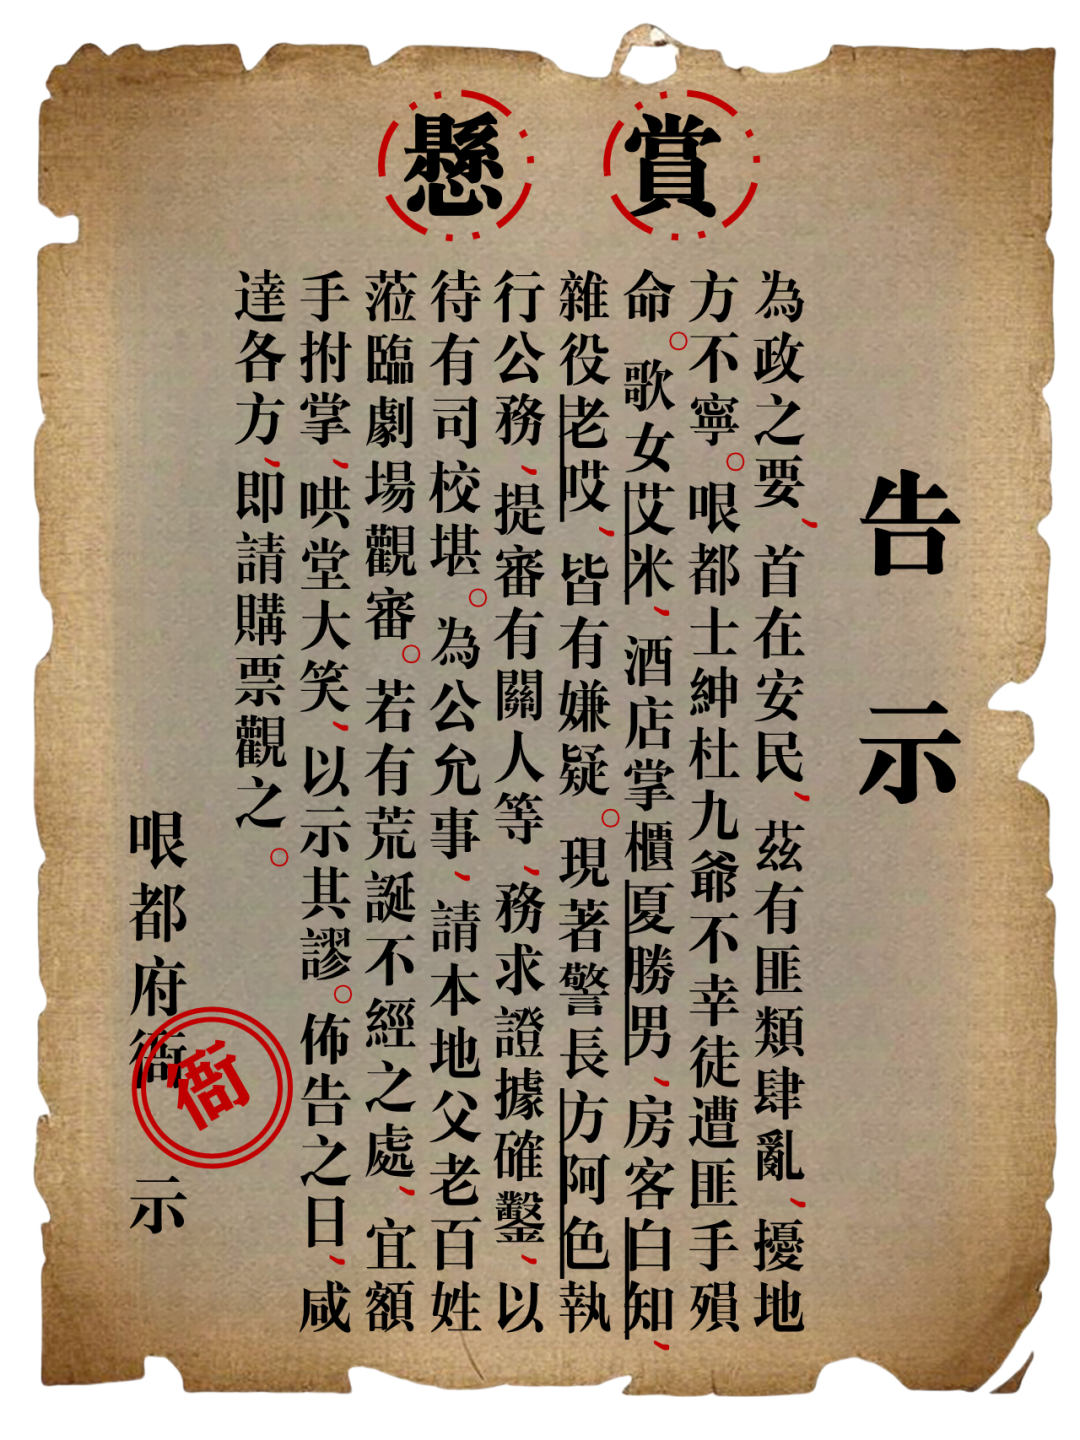 懸賞
告示
為政之要、首在安民、茲有匪類肆亂、擾地
方不寧。哏都士紳杜九爺不幸徒遭匪手殞
命。歌女艾米、酒店掌櫃夏勝男、房客白知、
雜役老哎、皆有嫌疑。現著警長方阿色執
行公務、提審有關人等、務求證據確鑿、以
待有司校堪。為公允事、請本地父老百姓
蒞臨劇場觀審。若有荒誕不經之處、宜額
手拊掌、哄堂大笑、以示其謬。佈告之日、咸
達各方、即請購票觀之。
哏都府衙 示
衙